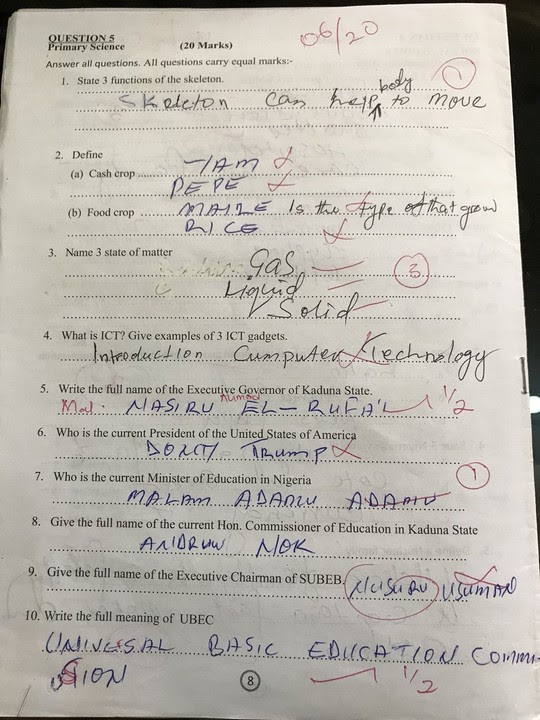 QUESTION 5
06/20
Primary Science (20 Marks)
Answer all questions. All questions carry equal marks:-
1. State 3 functions of the skeleton.
1
body
Skeleton can help to move
2. Define
(a) Cash crop YAM
PEPE
(b) Food crop MAIZE Is the type of that grow
RICE
3. Name 3 state of matter
GAS
3
Liquid
Solid
4. What is ICT? Give examples of 3 ICT gadgets.
Introduction Cumputer Technology
5. Write the full name of the Executive Governor of Kaduna State.
Mal. NASIRU Ahmad EL-RUFA'I 1/2
6. Who is the current President of the United States of America
Trump
7. Who is the current Minister of Education in Nigeria
1
MALAM ADAMU ADAMU
8. Give the full name of the current Hon. Commissioner of Education in Kaduna State
ANDRUW NOK
9. Give the full name of the Executive Chairman of SUBEB. NUSURU USUMAN
10. Write the full meaning of UBEC
UNIVESAL BASIC EDUCATION COMMI-
SSION 1/2
8